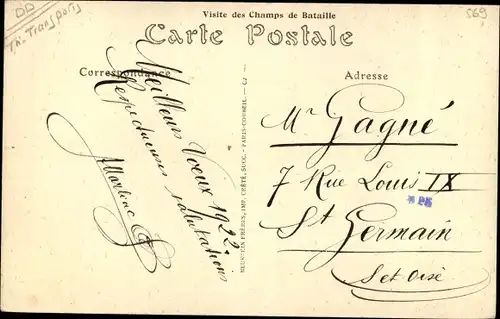 DD
Th. Transports
569
Visite des Champs de Bataille
Carte Postale
Correspondance
Adresse
Meilleurs Voeux 1922.
Respectueuses salutations
MEUNYNCK FRÈRES, IMP. CRÉTÉ, SUCC. PARIS-CORBEIL
Mr Gagné
7 Rue Louis IX
St Germain
S et Oise